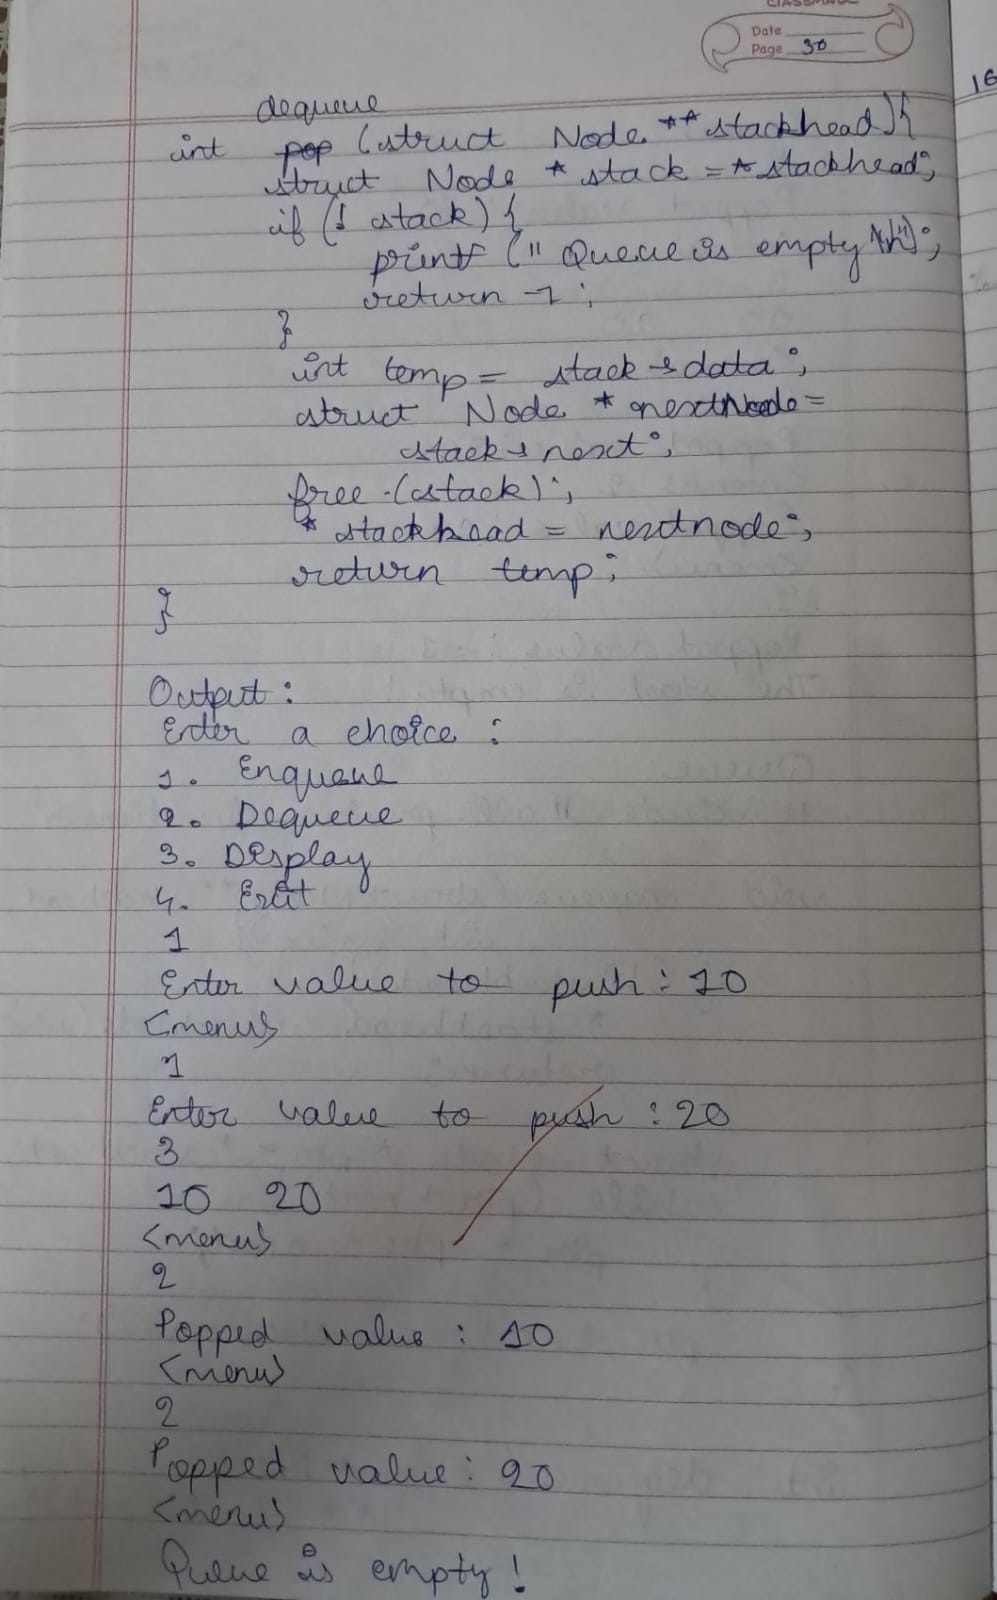 CLASSMATE
Date
Page 30
16
dequeue
int pop (struct Node ** stackhead){
struct Node * stack = * stackhead;
if (! stack) {
printf (" Queue is empty \n");
return -1;
}
int temp = stack → data;
struct Node * nextNode =
stack → next;
free (stack);
* stackhead = nextnode;
return temp;
}
Output:
Enter a choice :
1. Enqueue
2. Dequeue
3. Display
4. Exit
1
Enter value to push : 10
<menu>
1
Enter value to push : 20
3
10 20
<menu>
2
Popped value : 10
<menu>
2
Popped value : 20
<menu>
Queue is empty!